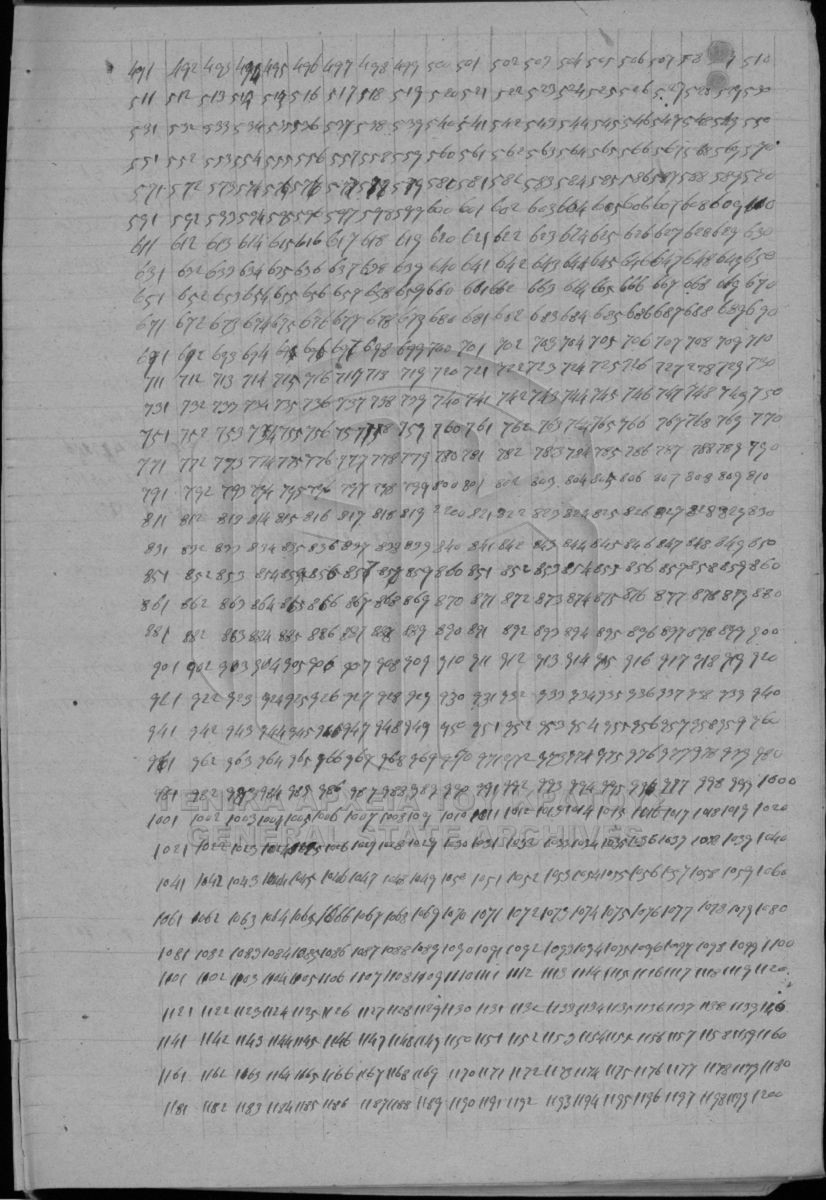 491 492 493 494 495 496 497 498 499 500 501 502 503 504 505 506 507 510
511 512 513 514 515 516 517 518 519 520 521 522 523 524 525 526 527 528 529 530
531 532 533 534 535 536 537 538 539 540 541 542 543 544 545 546 547 548 549 550
551 552 553 554 555 556 557 558 559 560 561 562 563 564 565 566 567 568 569 570
571 572 573 574 575 576 577 578 579 580 581 582 583 584 585 586 587 588 589 590
591 592 593 594 595 596 597 598 599 600 601 602 603 604 605 606 607 608 609 610
611 612 613 614 615 616 617 618 619 620 621 622 623 624 625 626 627 628 629 630
631 632 633 634 635 636 637 638 639 640 641 642 643 644 645 646 647 648 649 650
651 652 653 654 655 656 657 658 659 660 661 662 663 664 665 666 667 668 669 670
671 672 673 674 675 676 677 678 679 680 681 682 683 684 685 686 687 688 689 690
691 692 693 694 695 696 697 698 699 700 701 702 703 704 705 706 707 708 709 710
711 712 713 714 715 716 717 718 719 720 721 722 723 724 725 726 727 728 729 730
731 732 733 734 735 736 737 738 739 740 741 742 743 744 745 746 747 748 749 750
751 752 753 754 755 756 757 758 759 760 761 762 763 764 765 766 767 768 769 770
771 772 773 774 775 776 777 778 779 780 781 782 783 784 785 786 787 788 789 790
791 792 793 794 795 796 797 798 799 800 801 802 803 804 805 806 807 808 809 810
811 812 813 814 815 816 817 818 819 820 821 822 823 824 825 826 827 828 829 830
831 832 833 834 835 836 837 838 839 840 841 842 843 844 845 846 847 848 849 850
851 852 853 854 855 856 857 858 859 860 851 852 853 854 855 856 857 858 859 860
861 862 863 864 865 866 867 868 869 870 871 872 873 874 875 876 877 878 879 880
881 882 883 884 885 886 887 888 889 890 891 892 893 894 895 896 897 898 899 900
901 902 903 904 905 906 907 908 909 910 911 912 913 914 915 916 917 918 919 920
921 922 923 924 925 926 927 928 929 930 931 932 933 934 935 936 937 938 939 940
941 942 943 944 945 946 947 948 949 950 951 952 953 954 955 956 957 958 959 960
961 962 963 964 965 966 967 968 969 970 971 972 973 974 975 976 977 978 979 980
981 982 983 984 985 986 987 988 989 990 991 992 993 994 995 996 997 998 999 1000
ΓΕΝΙΚΑ ΑΡΧΕΙΑ ΤΟΥ ΚΡΑΤΟΥΣ
1001 1002 1003 1004 1005 1006 1007 1008 1009 1010 1011 1012 1013 1014 1015 1016 1017 1018 1019 1020
GENERAL STATE ARCHIVES
1021 1022 1023 1024 1025 1026 1027 1028 1029 1030 1031 1032 1033 1034 1035 1036 1037 1038 1039 1040
1041 1042 1043 1044 1045 1046 1047 1048 1049 1050 1051 1052 1053 1054 1055 1056 1057 1058 1059 1060
1061 1062 1063 1064 1065 1066 1067 1068 1069 1070 1071 1072 1073 1074 1075 1076 1077 1078 1079 1080
1081 1082 1083 1084 1085 1086 1087 1088 1089 1090 1091 1092 1093 1094 1095 1096 1097 1098 1099 1100
1101 1102 1103 1104 1105 1106 1107 1108 1109 1110 1111 1112 1113 1114 1115 1116 1117 1118 1119 1120
1121 1122 1123 1124 1125 1126 1127 1128 1129 1130 1131 1132 1133 1134 1135 1136 1137 1138 1139 1140
1141 1142 1143 1144 1145 1146 1147 1148 1149 1150 1151 1152 1153 1154 1155 1156 1157 1158 1159 1160
1161 1162 1163 1164 1165 1166 1167 1168 1169 1170 1171 1172 1173 1174 1175 1176 1177 1178 1179 1180
1181 1182 1183 1184 1185 1186 1187 1188 1189 1190 1191 1192 1193 1194 1195 1196 1197 1198 1199 1200